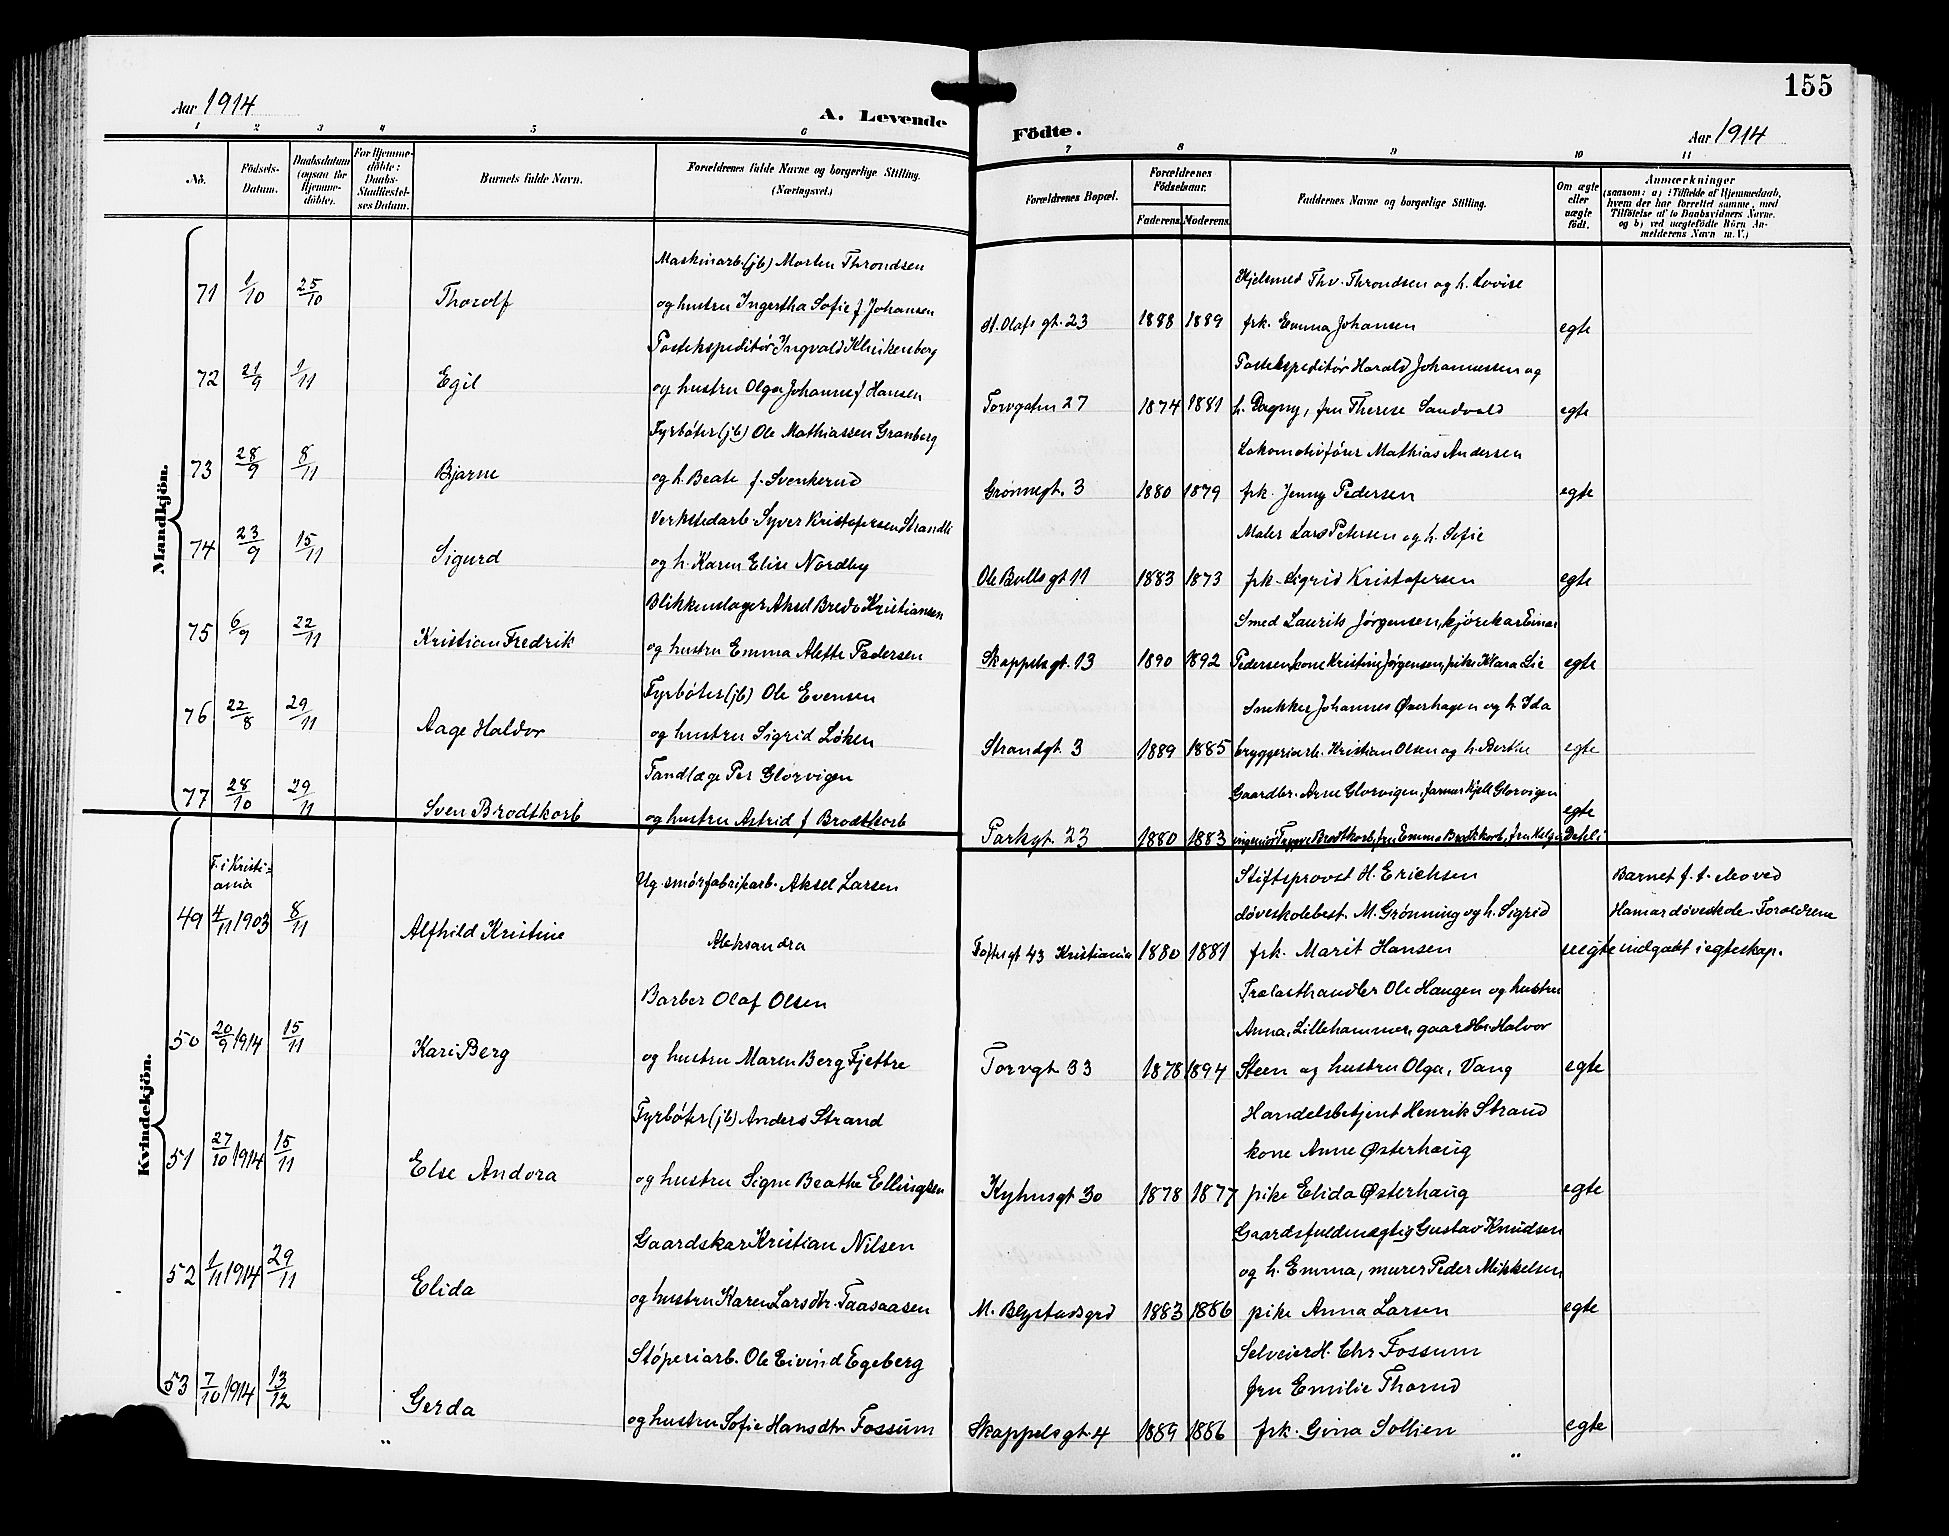 155
Aar 1914
A. Levende
Födte.
Aar 1914
1 2 3 4 5 6 7 8 9 10 11
No.
Födsels-Datum.
Daabsdatum (ogsaa for Hjemmedöbte).
For Hjemmedöbte: Daabs-Stadfæstelses Datum.
Barnets fulde Navn.
Forældrenes fulde Navne og borgerlige Stilling. (Næringsvei.)
Forældrenes Bopæl.
Forældrenes Födselsaar.
Faderens. Moderens.
Faddernes Navne og borgerlige Stilling.
Om ægte eller uægte födt.
Anmærkninger
(saasom: a) i Tilfælde af Hjemmedaab, hvem der har forrettet samme, med Tilföielse af to Daabsvidners Navne, og b) ved uægtefödte Börn Anmelderens Navn m. V.)
Mandkjön.
71 1/10 25/10 Thorolf
Maskinarb. (jb) Morten Throndsen
og hustru Ingertha Sofie f Johansen
St. Olafs gt. 23 1888 1889
Hjelsmed Thv. Throndsen og h. Lovise
frk. Emma Johansen
egte
72 21/9 1/11 Egil
Postekspeditør Ingvald Klinkenberg
og hustru Olga Johanne f Hansen
Torvgaten 27 1874 1881
Postekspeditør Harald Johannessen og
h. Dagny, fru Therese Sandvold
egte
73 28/9 8/11 Bjarne
Fyrbøter (jb) Ole Mathiassen Granberg
og h. Beate f. Svenkerud
Grønnegt. 3 1880 1879
Lokomotivfører Mathias Andersen
frk. Jenny Pedersen
egte
74 23/9 15/11 Sigurd
Verkstedarb. Syver Kristofersen Strandli
og h. Karen Elise Nordby
Ole Bulls gt 11 1883 1873
Maler Lars Petersen og h. Sofie
frk. Sigrid Kristofersen
egte
75 6/9 22/11 Kristian Fredrik
Blikkenslager Aksel Bredo Kristiansen
og hustru Emma Alette Pedersen
Skappels gt. 13 1890 1892
Smed Laurits Jørgensen, kjørekar Einar
Pedersen, kone Kristine Jørgensen, pike Klara Lie
egte
76 22/8 29/11 Aage Haldor
Fyrbøter (jb) Ole Evensen
og hustru Sigrid Løken
Strandgt. 3 1889 1885
Snekker Johannes Øverhagen og h. Ida
bryggeriarb. Kristian Olsen og h. Berthe
egte
77 28/10 29/11 Sven Brodtkorb
Tandlæge Per Glorvigen
og hustru Astrid f Brodtkorb
Parkgt. 23 1880 1883
Gaardbr. Arne Glorvigen, farmer Kjell Glorvigen
ingeniør Trygve Brodtkorb, fru Emma Brodtkorb, fru Helga Dehli
egte
Kvindekjön.
49 F. i Kristiania 4/11 1903 8/11 Alfhild Kristine
Ug. smørfabrikarb. Aksel Larsen
Aleksandra
Toftesgt 43 Kristiania 1880 1881
Stiftsprovst H. Erichsen
døveskolebest. M. Grønning og h. Sigrid
frk. Marit Hansen
uegte
Barnet f. t. elev ved
Hamar døveskole. Foreldrene
indgaat i egteskap.
50 20/9 1914 15/11 Kari Berg
Barber Olaf Olsen
og hustru Maren Berg Fjettre
Torvgt. 33 1878 1894
Trælasthandler Ole Haugen og hustru
Anna, Lillehammer, gaardbr Halvor
Steen og hustru Olga, Vang
egte
51 27/10 1914 15/11 Else Andora
Fyrbøter (jb) Anders Strand
og hustru Signe Beathe Ellingsen
Kyhnsgt 30 1878 1877
Handelsbetjent Henrik Strand
kone Anne Østerhaug
pike Elida Østerhaug
egte
52 1/11 1914 29/11 Elida
Gaardskar Kristian Nilsen
og hustru Karen Larsdtr. Taasaasen
M. Blystadsgrd 1883 1886
Gaardsfuldmægtig Gustav Knudsen
og h. Emma, murer Peder Mikkelsen
pike Anna Larsen
egte
53 7/10 1914 13/12 Gerda
Støperiarb. Ole Eivind Egeberg
og hustru Sofie Hansdtr Fossum
Skappels gt. 4 1889 1886
Selveier H. Chr Fossum
fru Emilie Thorud
frk. Gina Sollien
egte